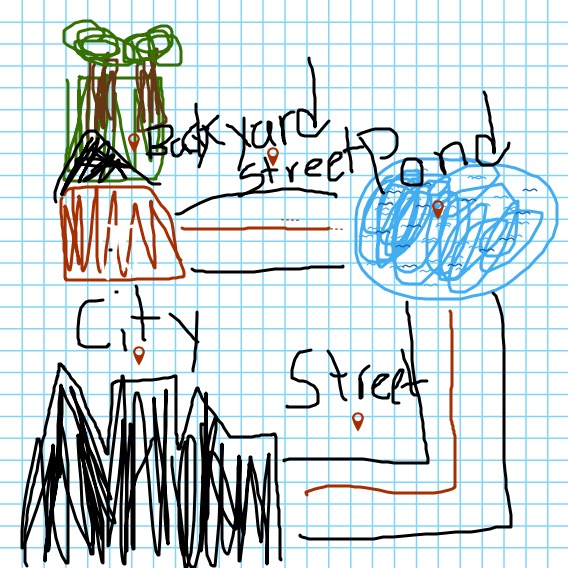 Backyard
Street
Pond
City
Street